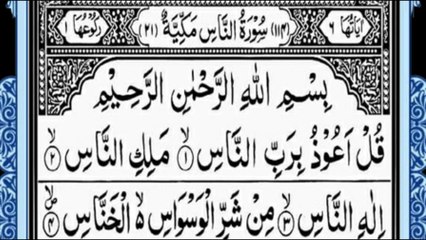 اٰیَاتُهَا ٦ (١١٤) سُوْرَةُ النَّاسِ مَكِّيَّةٌ (٢١) رُكُوْعُهَا ١
بِسْمِ اللهِ الرَّحْمٰنِ الرَّحِيْمِ
قُلْ اَعُوْذُ بِرَبِّ النَّاسِ ۙ﴿١﴾ مَلِكِ النَّاسِ ۙ﴿٢﴾
اِلٰهِ النَّاسِ ۙ﴿٣﴾ مِنْ شَرِّ الْوَسْوَاسِ ۙ۬ الْخَنَّاسِ ۪ۙ﴿٤﴾